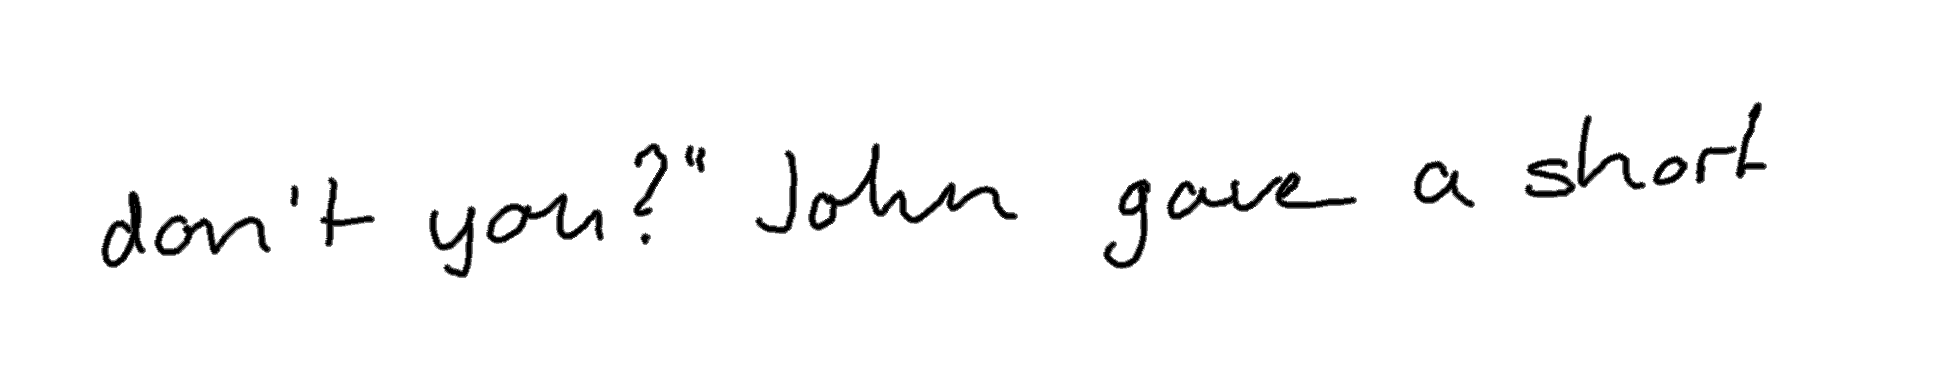 don't you?" John gave a short